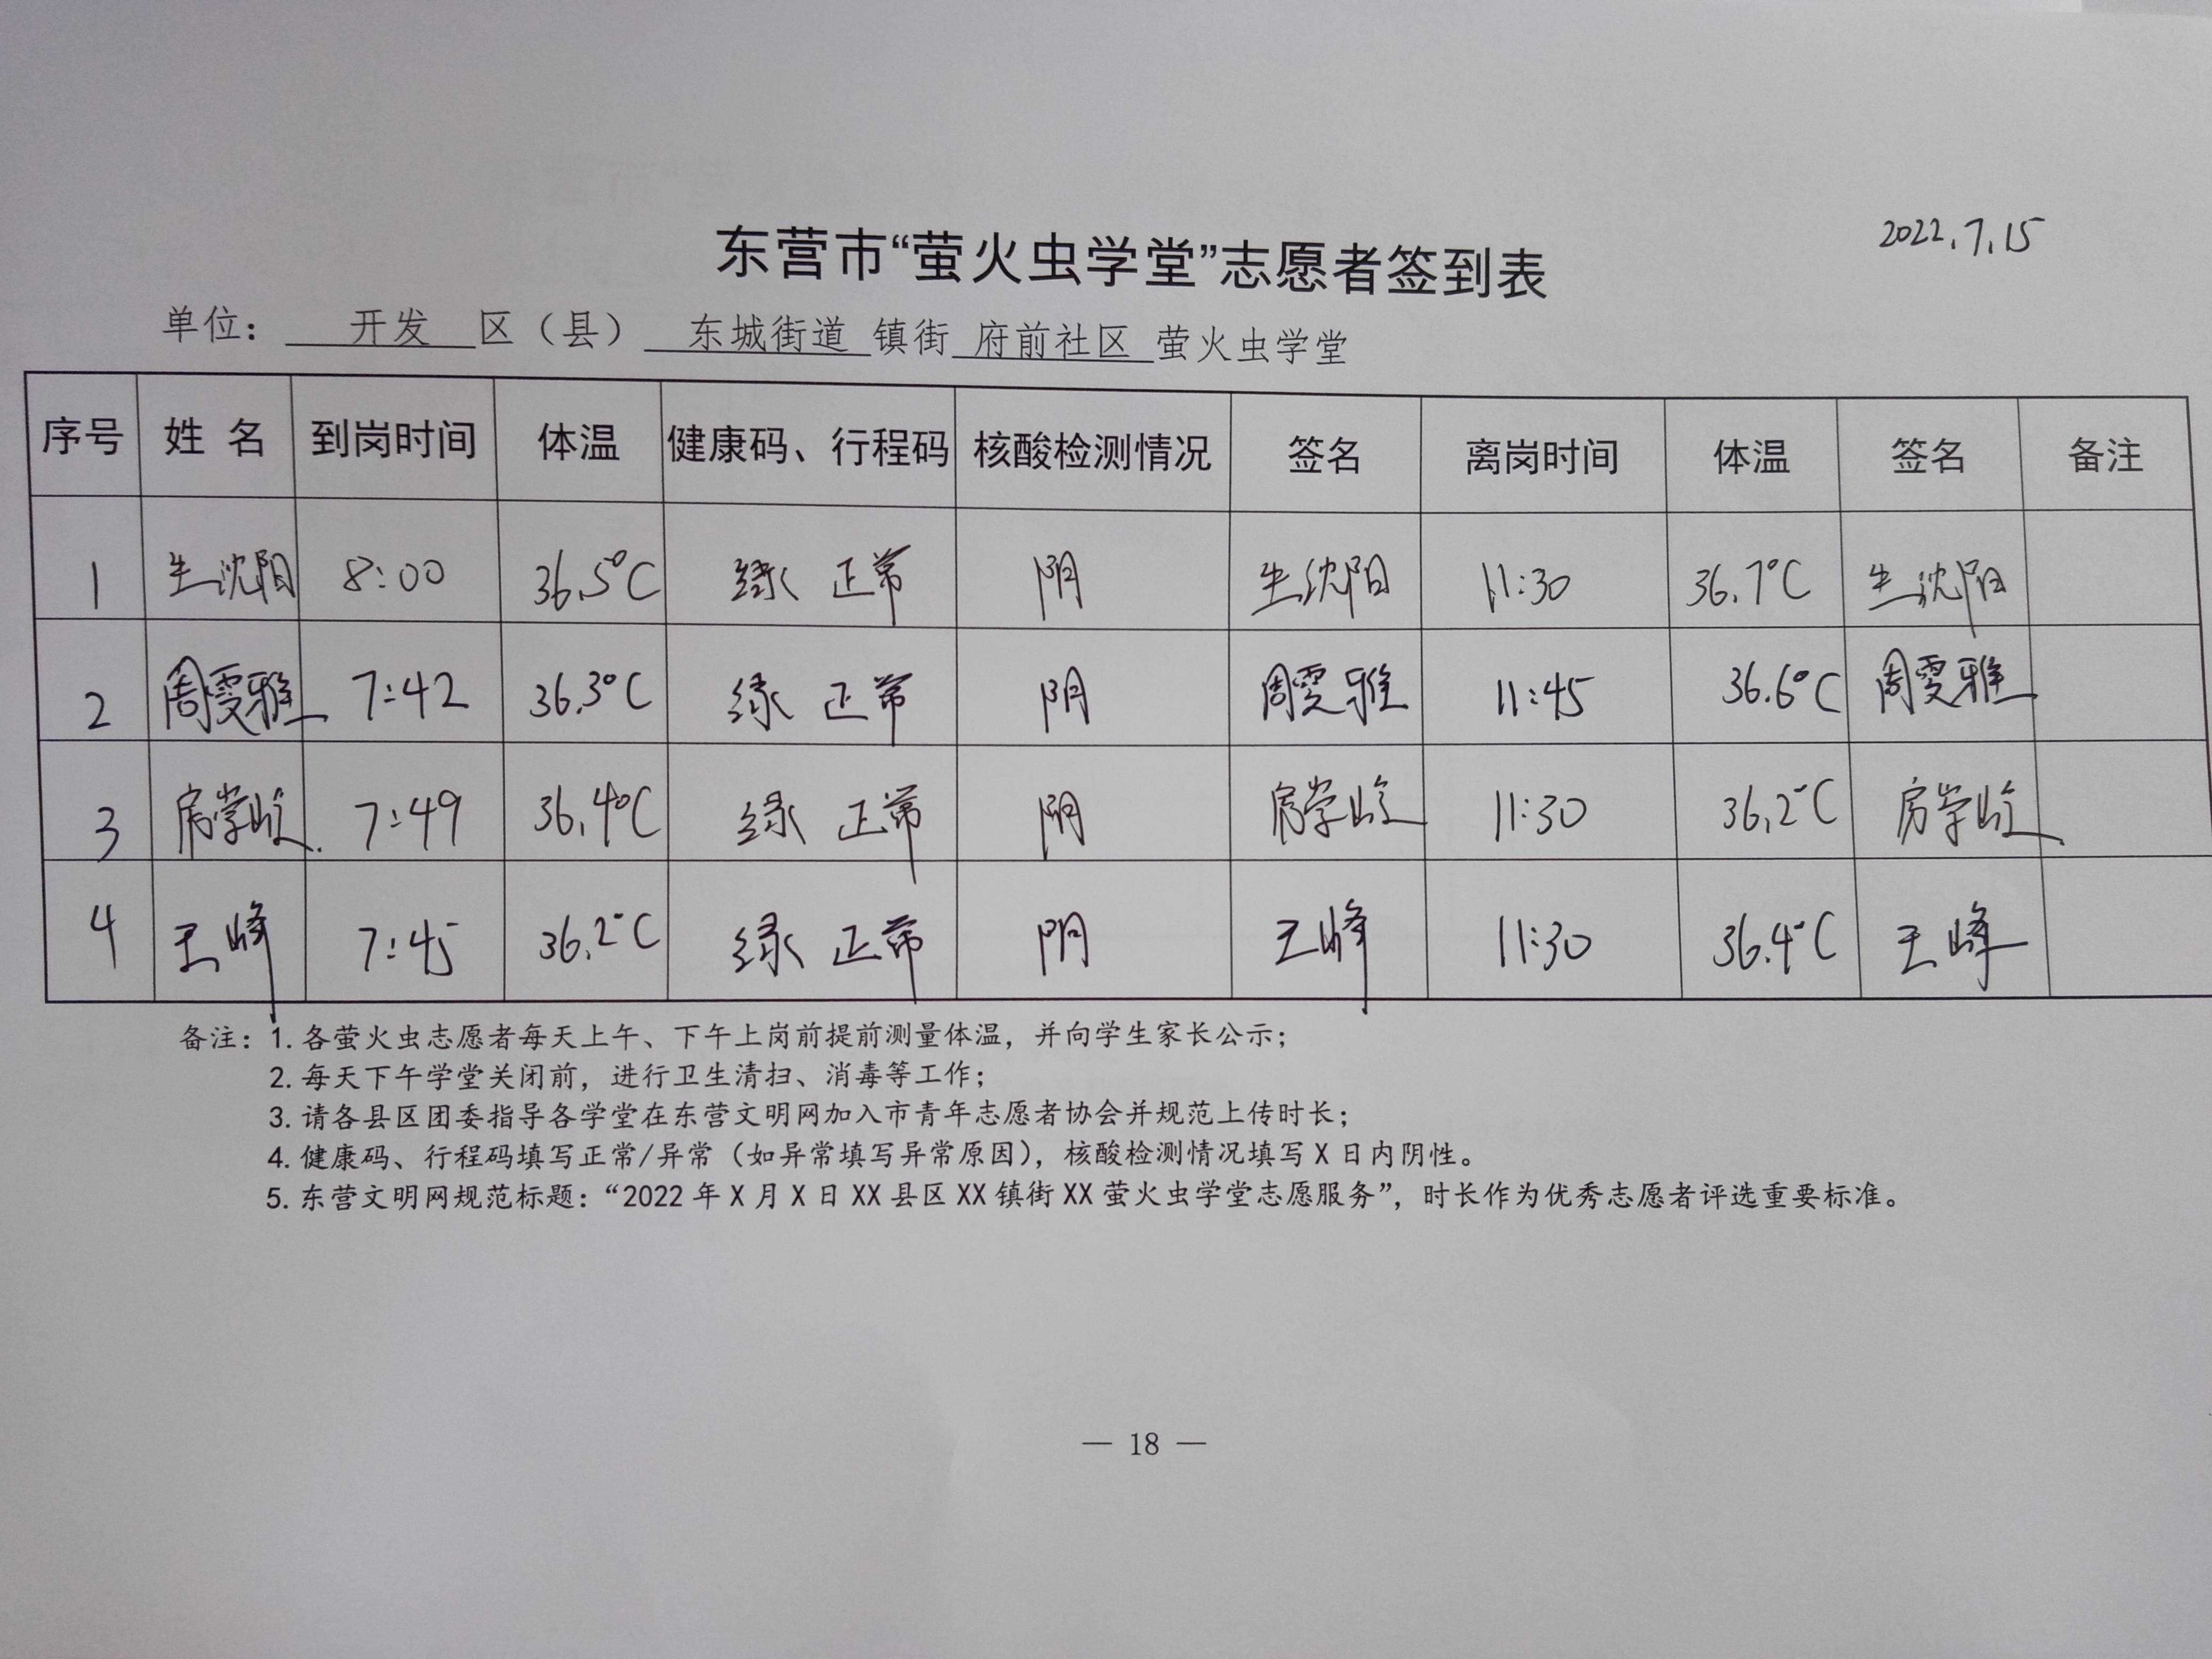 2022.7.15
东营市“萤火虫学堂”志愿者签到表
单位： 开发 区（县） 东城街道 镇街 府前社区 萤火虫学堂
序号 姓 名 到岗时间 体温 健康码、行程码 核酸检测情况 签名 离岗时间 体温 签名 备注
1 生沈阳 8:00 36.5°C 绿 正常 阴 生沈阳 11:30 36.7°C 生沈阳
2 周雯雅 7:42 36.3°C 绿 正常 阴 周雯雅 11:45 36.6°C 周雯雅
3 房学 7:49 36.4°C 绿 正常 阴 房学 11:30 36.2°C 房学
4 王峰 7:45 36.2°C 绿 正常 阴 王峰 11:30 36.4°C 王峰
备注：1.各萤火虫志愿者每天上午、下午上岗前提前测量体温，并向学生家长公示；
2.每天下午学堂关闭前，进行卫生清扫、消毒等工作；
3.请各县区团委指导各学堂在东营文明网加入市青年志愿者协会并规范上传时长；
4.健康码、行程码填写正常/异常（如异常填写异常原因），核酸检测情况填写X日内阴性。
5.东营文明网规范标题：“2022年X月X日XX县区XX镇街XX萤火虫学堂志愿服务”，时长作为优秀志愿者评选重要标准。
— 18 —